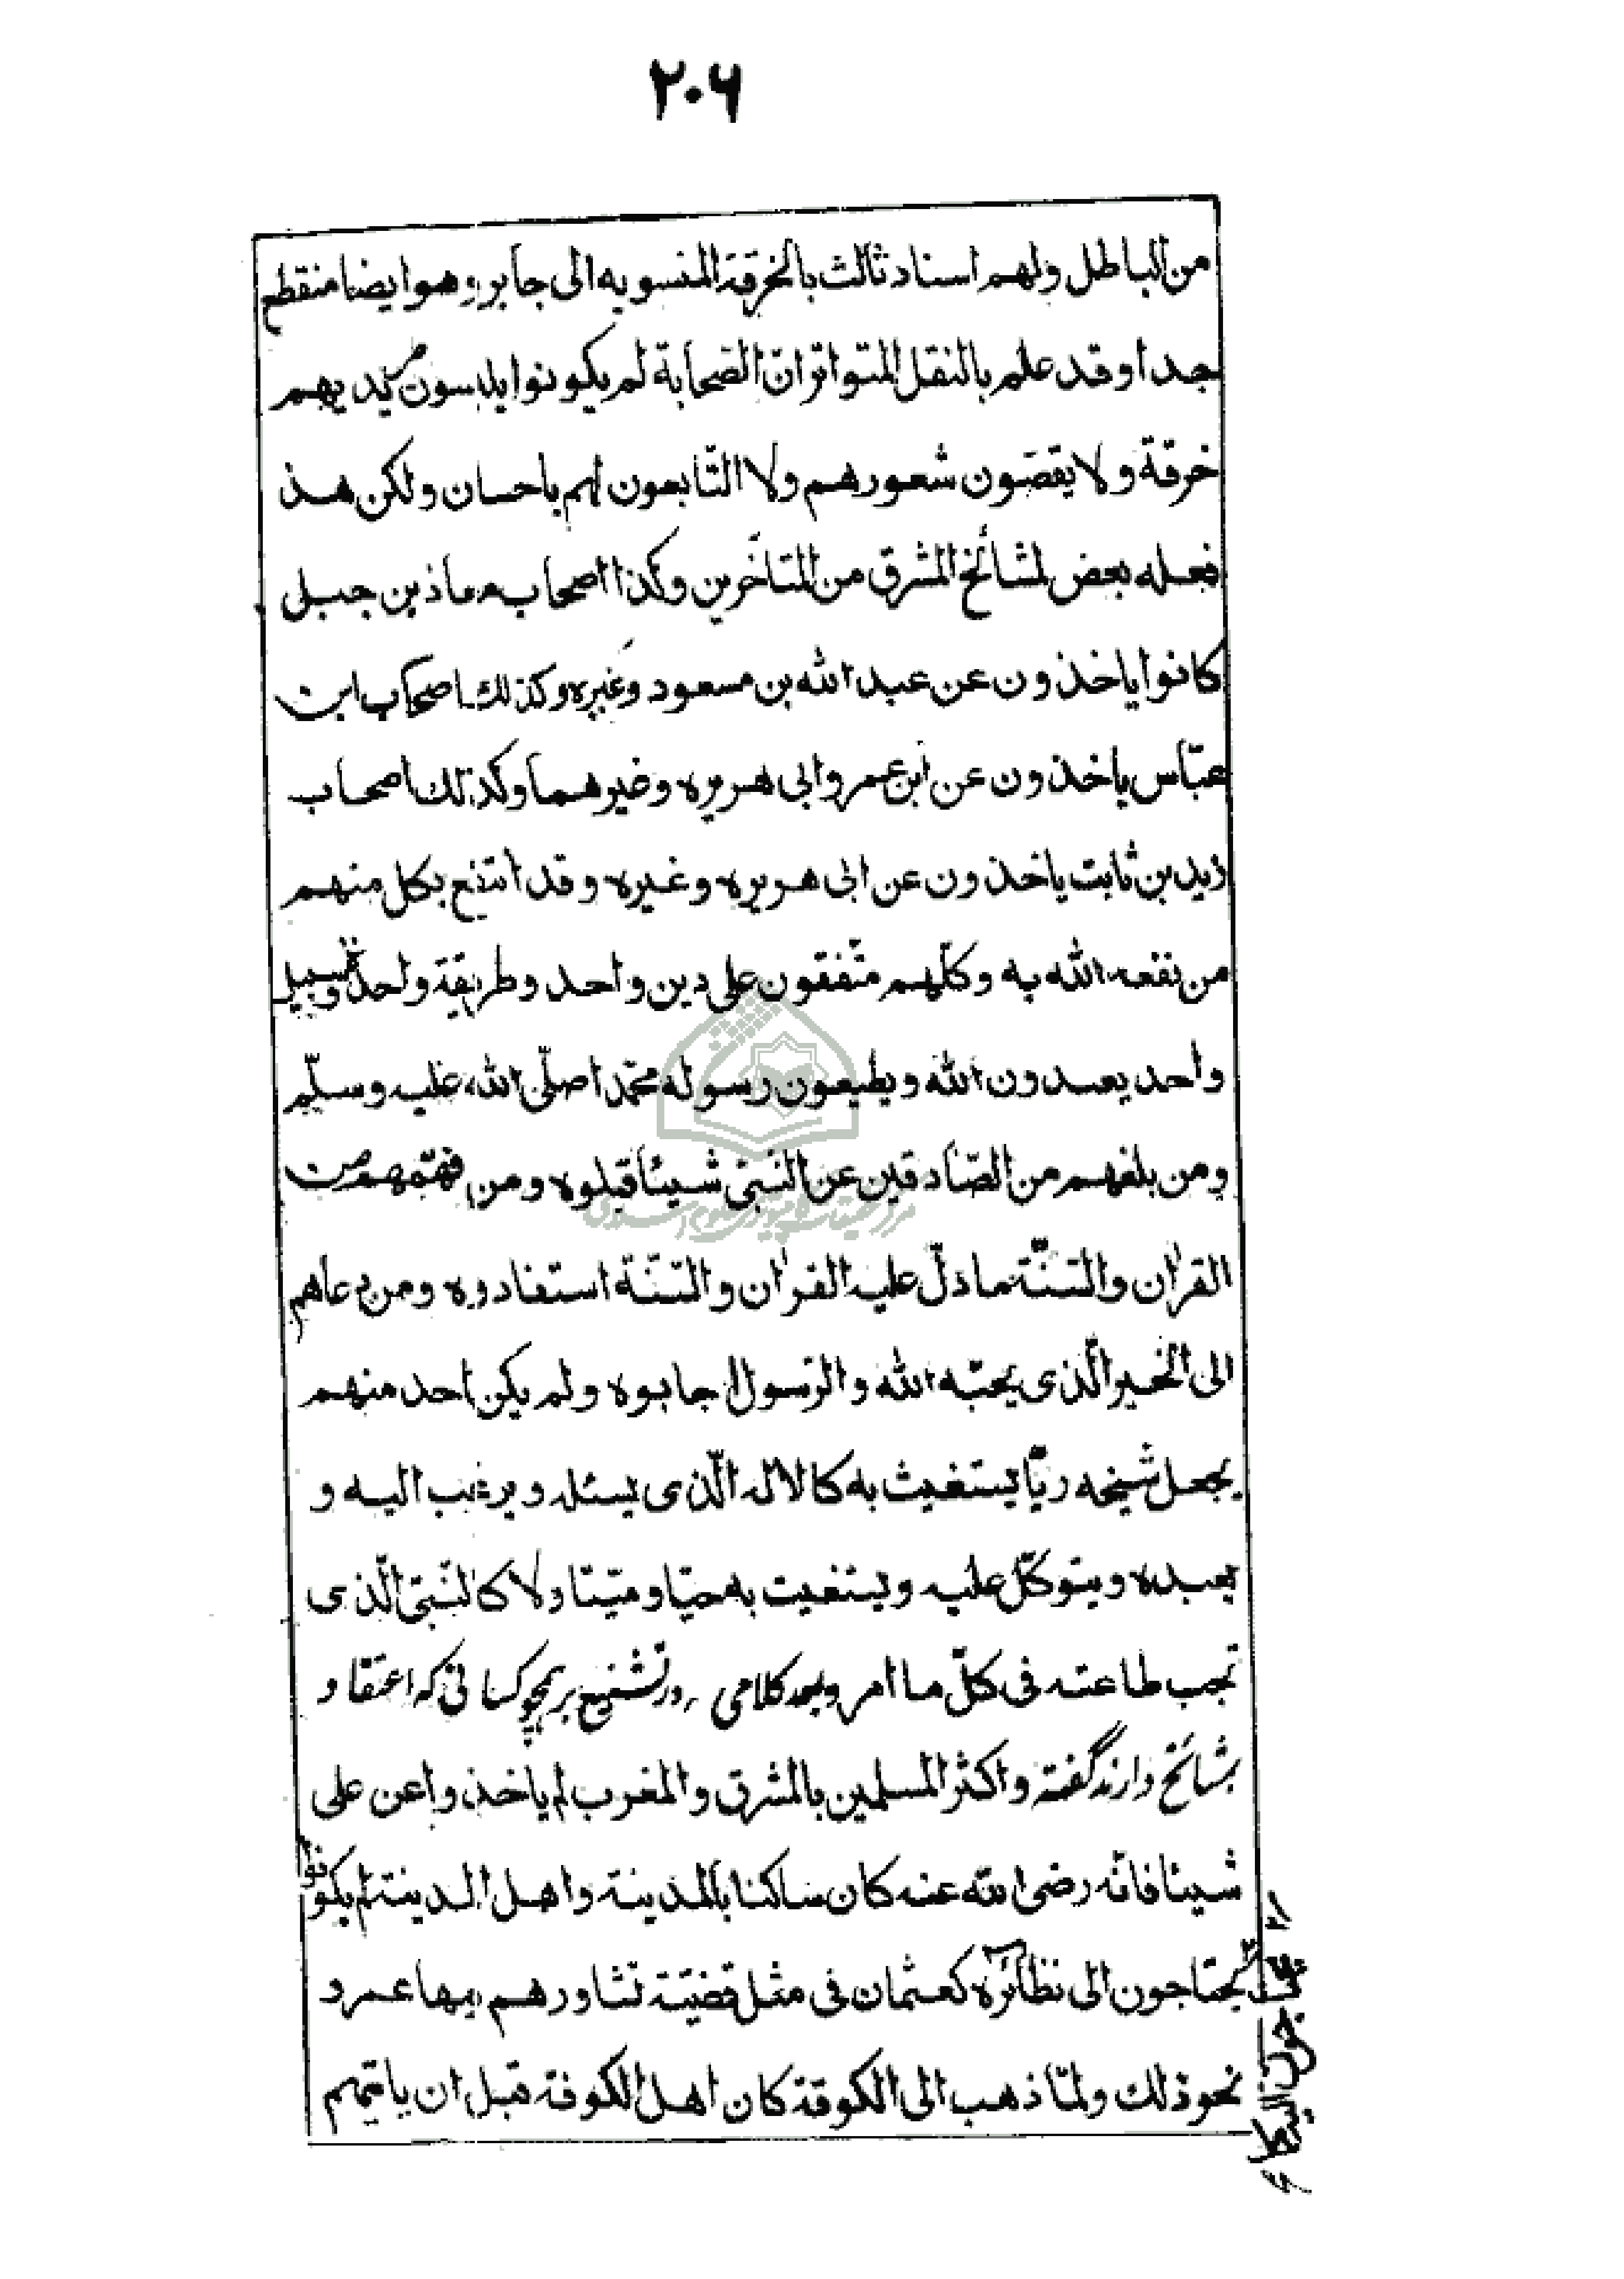 ٢٠٦
من الباطل ولهم اسناد ثالث بالخرقة المنسوبه الى جابر وهو ايضا منقطع
جدا وقد علم بالنقل المتواتر انّ الصّحابة لم يكونوا يلبسون مريديهم
خرقة ولا يقصّون شعورهم ولا التّابعون لهم باحسان ولكن هذ
فعله بعض لمشائخ المشرق من المتاخّرين وكذا اصحاب معاذ بن جبل
كانوا ياخذون عن عبد الله بن مسعود وغيره وكذلك اصحاب ابن
عبّاس ياخذون عن ابن عمر وابى هريره وغيرهما وكذلك اصحاب
زيد بن ثابت ياخذون عن ابى هريره وغيره وقد انتفع بكل منهم
من نفعه الله به وكلّهم متّفقون على دين واحد وطريقة واحدة وسبيل
واحد يعبدون الله ويطيعون رسوله محمّدا صلّى الله عليه وسلّم
ومن بلغهم من الصّادقين عن النّبىّ شيئا قبلوه ومن فهّمهم من
القران والسّنّة ما دلّ عليه القران والسّنّة استفادوه ومن دعاهم
الى الخير الّذى يحبّه الله والرّسول اجابوه ولم يكن احد منهم
يجعل شيخه ربّا يستغيث به كالاله الّذى يسئله ويرغب اليه و
يعبده ويتوكّل عليه ويستغيث به حيّا وميّتا ولا كالنّبىّ الّذى
تجب طاعته فى كلّ ما امر وبعد كلامى در تشنيع بر همچو كسانى كه اعتقاد
بمشائخ دارند گفته واكثر المسلمين بالمشرق والمغرب لم ياخذوا عن على
شيئا فانّه رضى الله عنه كان ساكنا بالمدينة واهل المدينة لم يكونوا
يحتاجون الى نظائره كعثمان فى مثل قضيّة تشاورهم فيها عمر و
نحو ذلك ولمّا ذهب الى الكوفة كان اهل الكوفة قبل ان ياتيهم